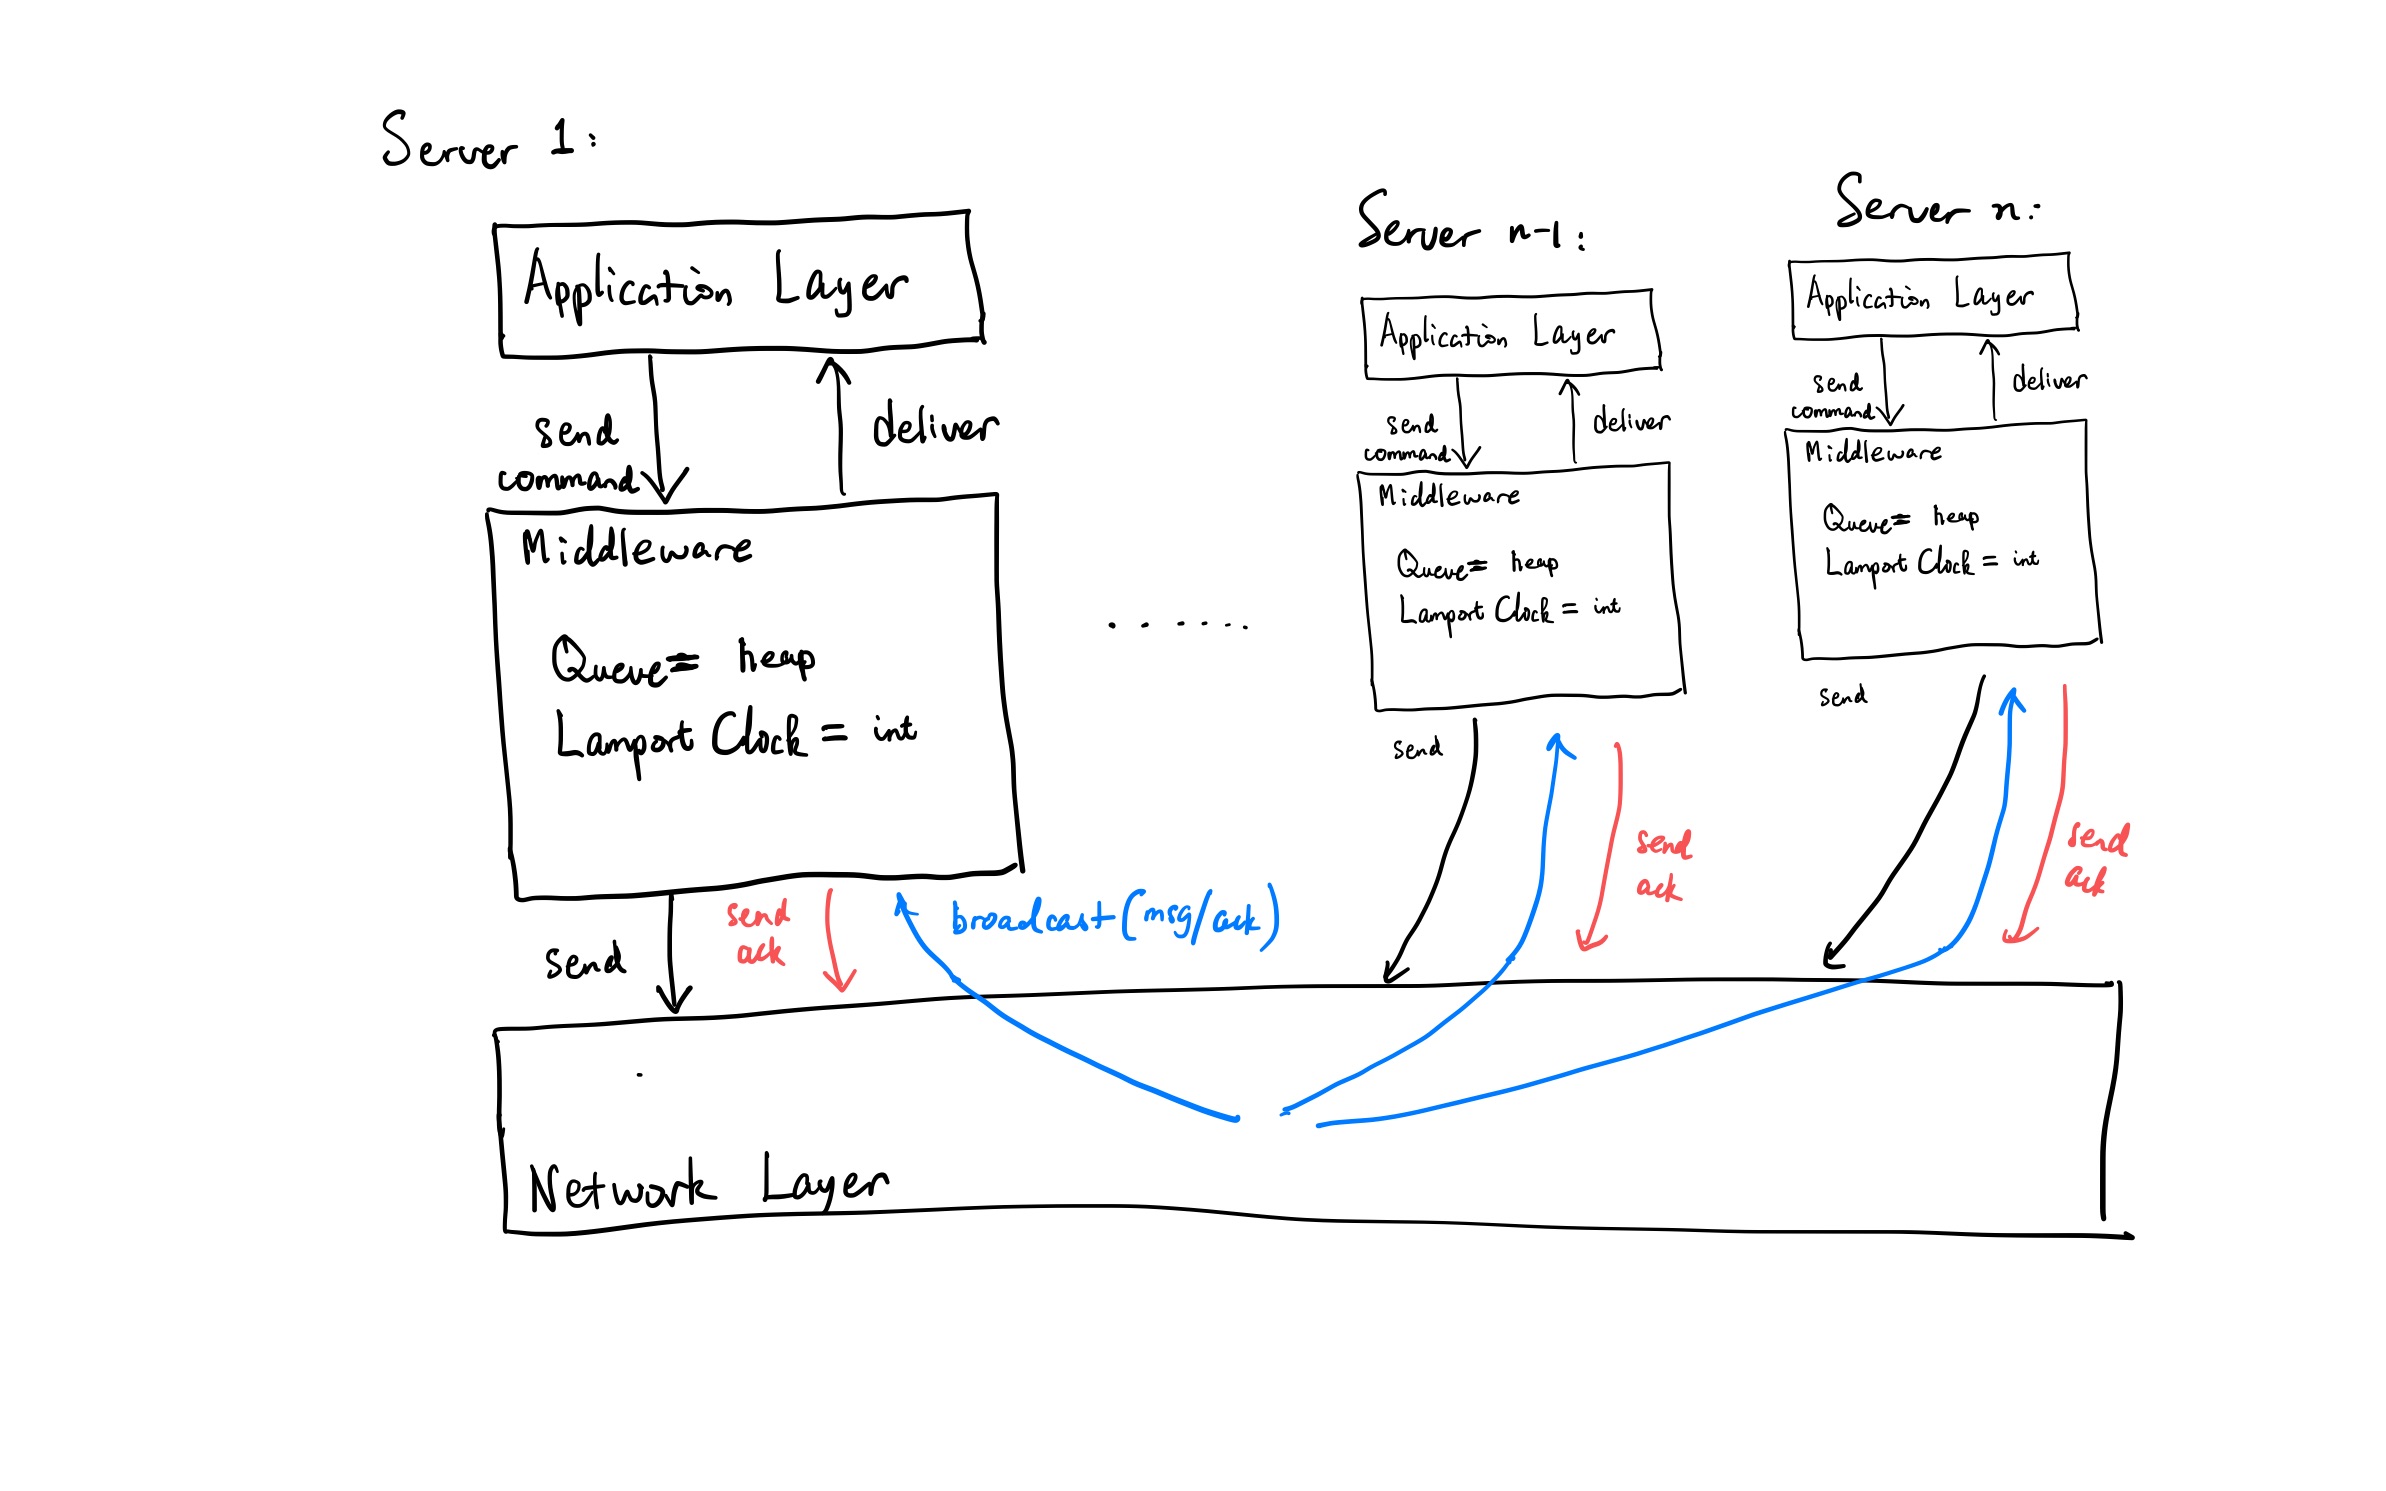 Server 1:
Application Layer
send
command
deliver
Middleware
Queue = heap
Lamport Clock = int
send
send
ack
broadcast (msg/ack)
......
Server n-1:
Application Layer
send
command
deliver
Middleware
Queue = heap
Lamport Clock = int
send
send
ack
Server n:
Application Layer
send
command
deliver
Middleware
Queue = heap
Lamport Clock = int
send
send
ack
Network Layer